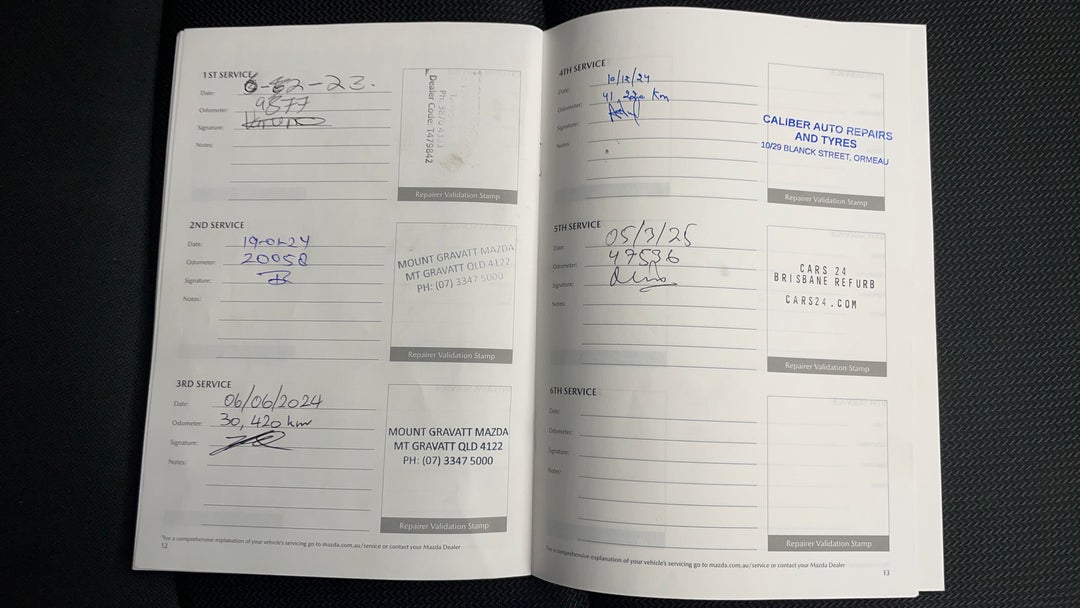 1ST SERVICE
Date: -23.
Odometer: 9877
Signature:
Notes:
Dealer Code: T479842
Repairer Validation Stamp
2ND SERVICE
Date: 19-01-24
Odometer: 20058
Signature:
Notes:
MOUNT GRAVATT MAZDA
MT GRAVATT QLD 4122
PH: (07) 3347 5000
Repairer Validation Stamp
3RD SERVICE
Date: 06/06/2024
Odometer: 30,420 km
Signature:
Notes:
MOUNT GRAVATT MAZDA
MT GRAVATT QLD 4122
PH: (07) 3347 5000
Repairer Validation Stamp
*For a comprehensive explanation of your vehicle's servicing go to mazda.com.au/service or contact your Mazda Dealer
12
4TH SERVICE
Date: 10/12/24
Odometer: 41, km
Signature:
Notes:
CALIBER AUTO REPAIRS
AND TYRES
10/29 BLANCK STREET, ORMEAU
Repairer Validation Stamp
5TH SERVICE
Date: 05/3/25
Odometer: 47536
Signature:
Notes:
CARS 24
BRISBANE REFURB
CARS24.COM
Repairer Validation Stamp
6TH SERVICE
Date:
Odometer:
Signature:
Notes:
Repairer Validation Stamp
*For a comprehensive explanation of your vehicle's servicing go to mazda.com.au/service or contact your Mazda Dealer
13